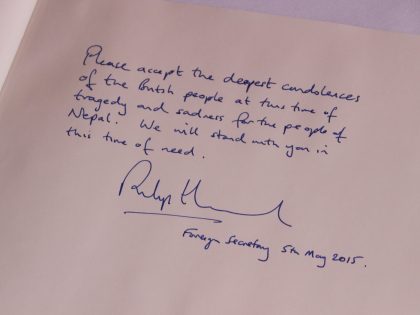 Please accept the deepest condolences
of the British people at this time of
tragedy and sadness for the people of
Nepal. We will stand with you in
this time of need.
Philip H
Foreign Secretary 5th May 2015.